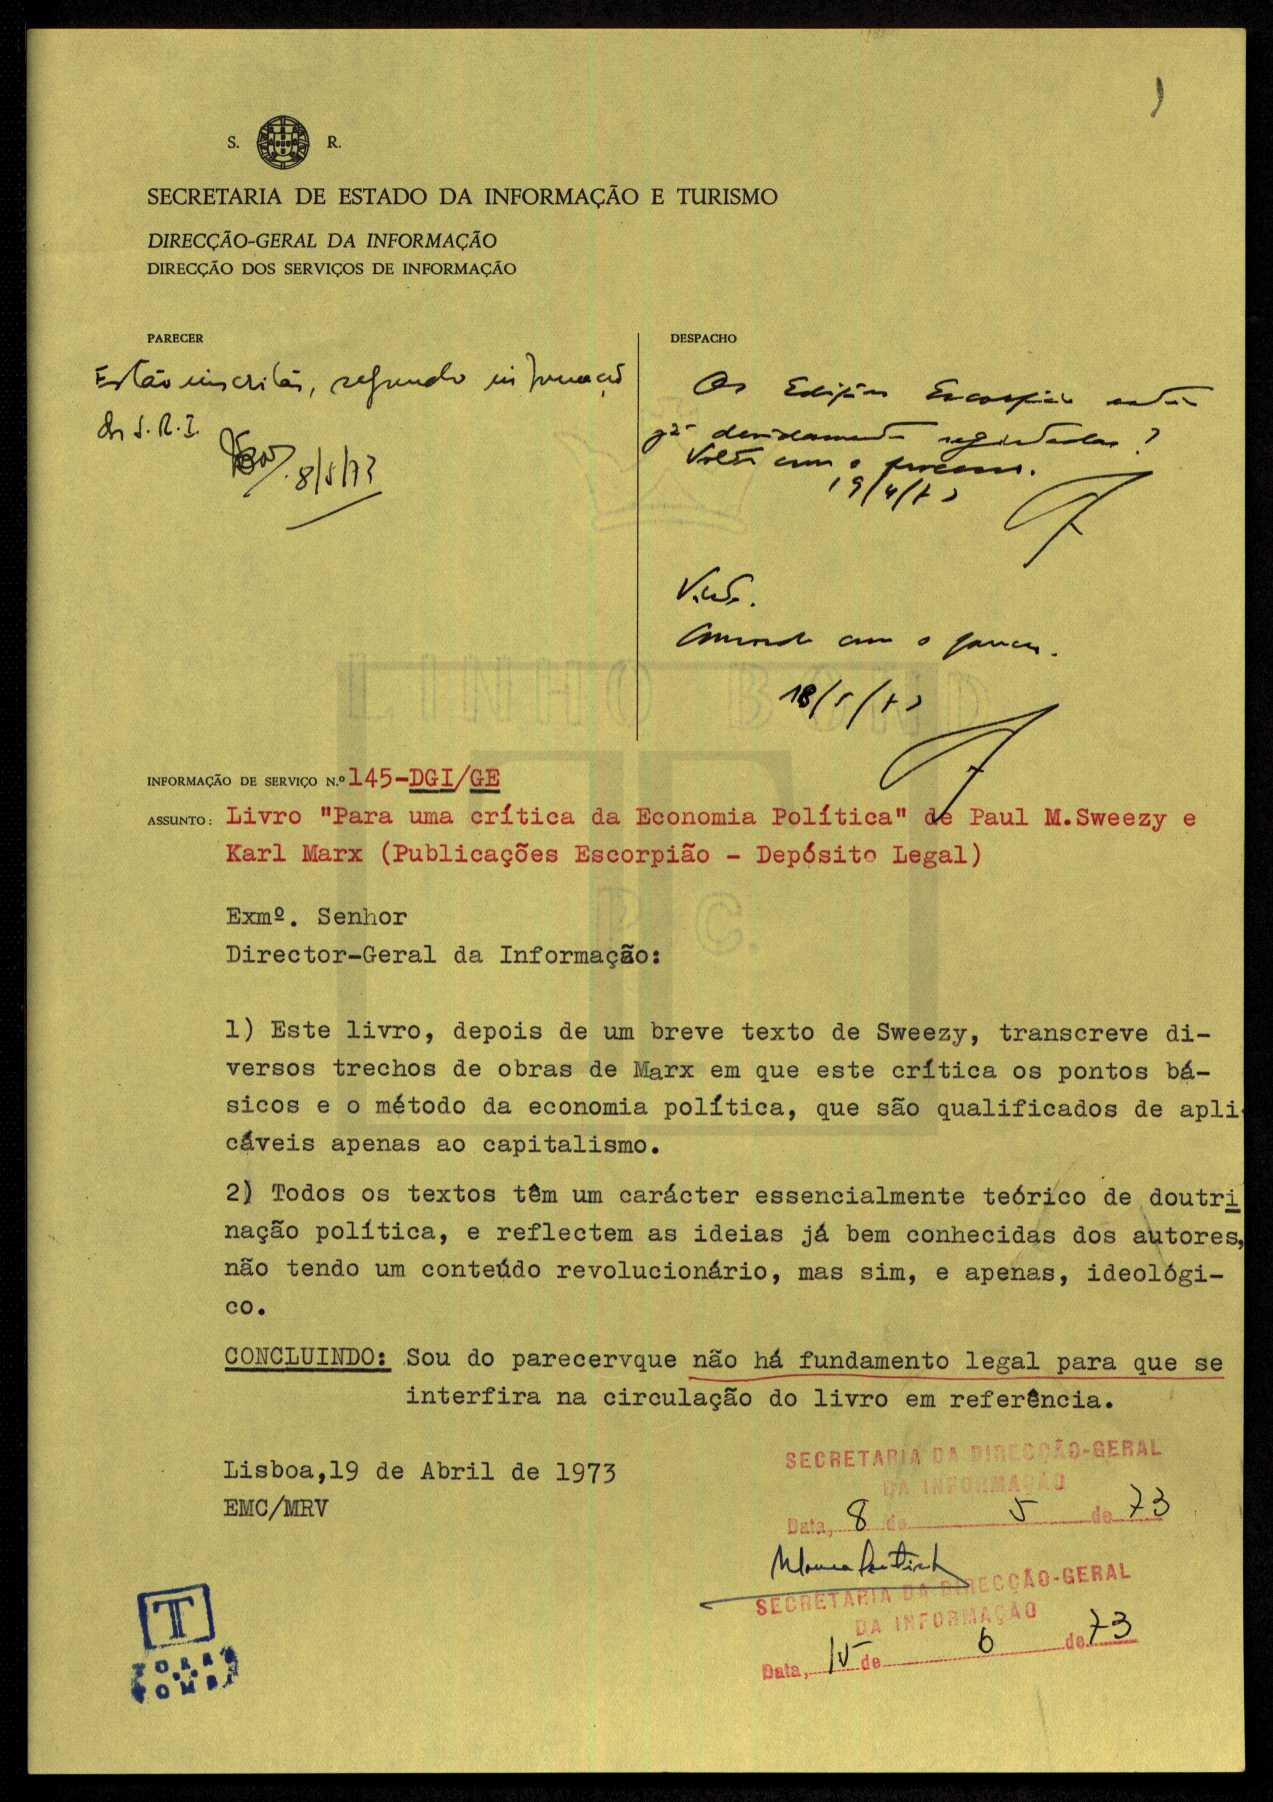 S. R.
SECRETARIA DE ESTADO DA INFORMAÇÃO E TURISMO
DIRECÇÃO-GERAL DA INFORMAÇÃO
DIRECÇÃO DOS SERVIÇOS DE INFORMAÇÃO
PARECER
Estão inscritas, segundo informação
da S.R.I.
8/5/73
DESPACHO
As Edições Escorpião estão
já devidamente registadas?
Volte com o processo.
19/4/73
Visto.
Concordo com o parecer.
18/5/73
LINHO BOND
P. C.
INFORMAÇÃO DE SERVIÇO N.º 145-DGI/GE
ASSUNTO: Livro "Para uma crítica da Economia Política" de Paul M.Sweezy e
Karl Marx (Publicações Escorpião - Depósito Legal)
Exmº. Senhor
Director-Geral da Informação:
1) Este livro, depois de um breve texto de Sweezy, transcreve di-
versos trechos de obras de Marx em que este crítica os pontos bá-
sicos e o método da economia política, que são qualificados de apli-
cáveis apenas ao capitalismo.
2) Todos os textos têm um carácter essencialmente teórico de doutri
nação política, e reflectem as ideias já bem conhecidas dos autores,
não tendo um conteúdo revolucionário, mas sim, e apenas, ideológi-
co.
CONCLUINDO: Sou do parecervque não há fundamento legal para que se
interfira na circulação do livro em referência.
Lisboa,19 de Abril de 1973
EMC/MRV
SECRETARIA DA DIRECÇÃO-GERAL
DA INFORMAÇÃO
Data, 8 de 5 de 73
SECRETARIA DA DIRECÇÃO-GERAL
DA INFORMAÇÃO
Data, 15 de 6 de 73
T
TORRE
DO
TOMBO